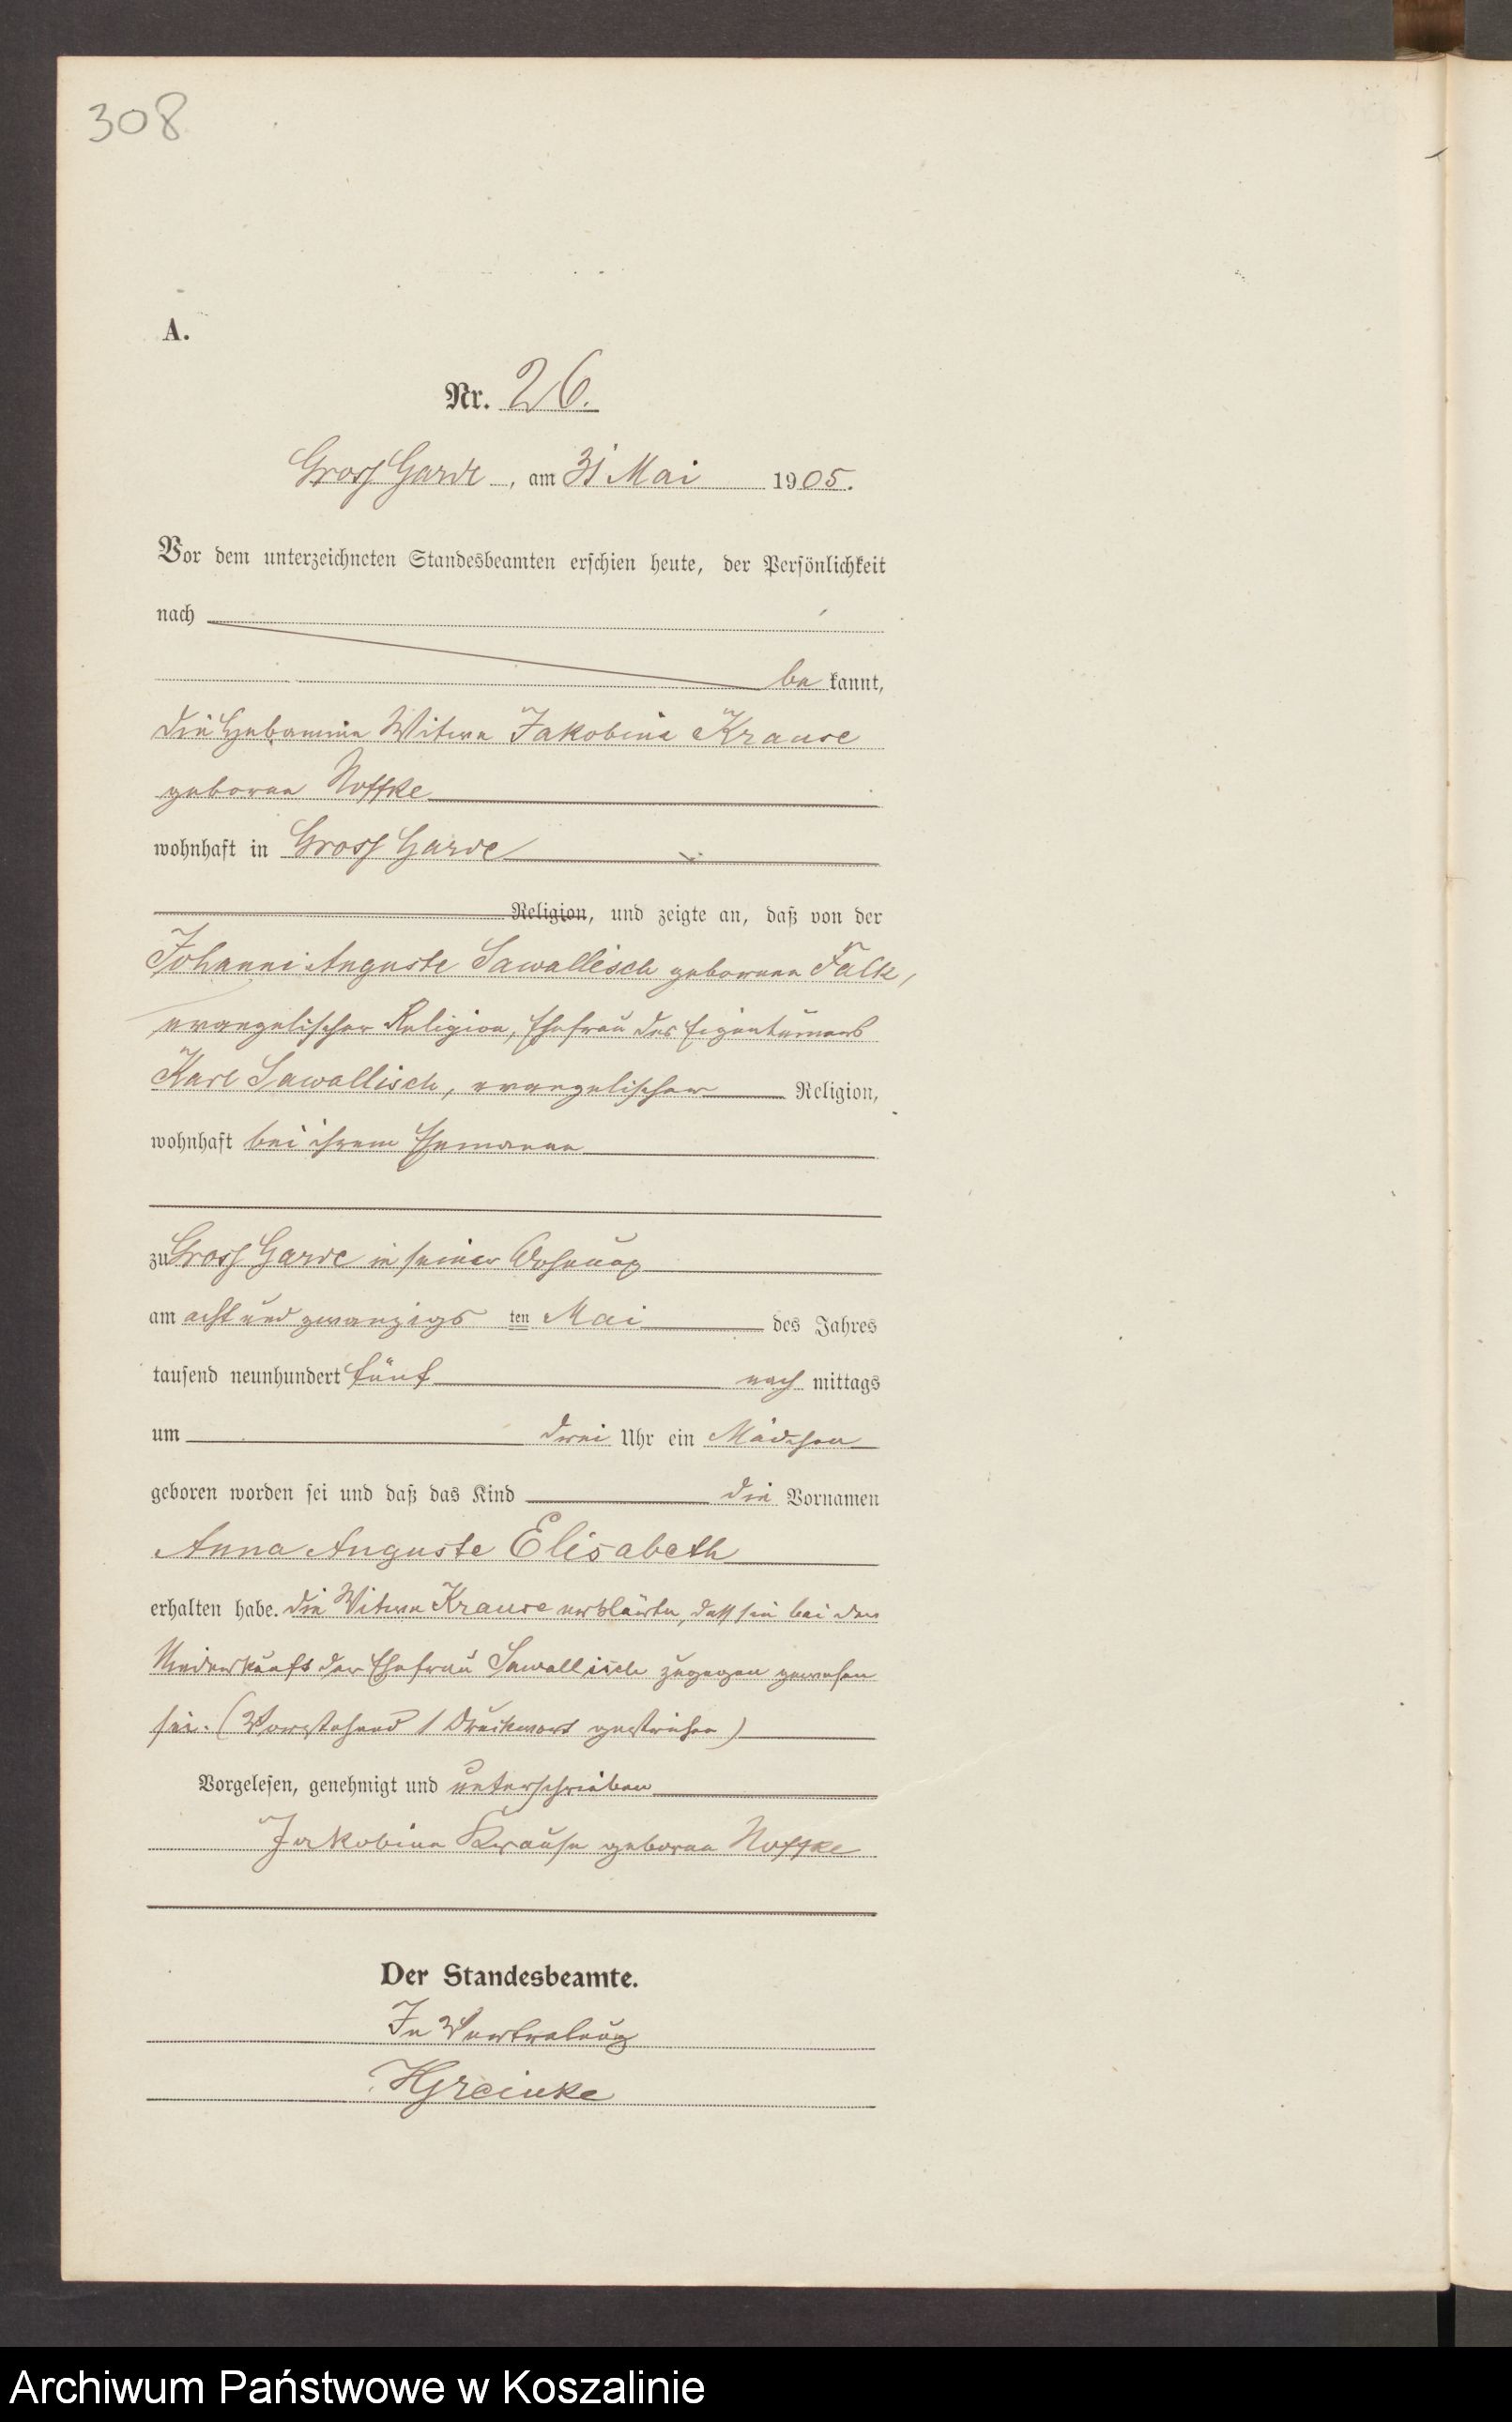 308
A.
Nr. 26.
Gross Garde, am 31 Mai 1905.
Vor dem unterzeichneten Standesbeamten erschien heute, der Persönlichkeit
nach
be kannt,
die Hebamme Witwe Jakobine Krause
geborene Noffke
wohnhaft in Gross Garde
Religion, und zeigte an, daß von der
Johanne Auguste Sawallisch geborenen Falk,
evangelischer Religion, Ehefrau des Eigentümers
Karl Sawallisch, evangelischer Religion,
wohnhaft bei ihrem Ehemanne
zu Gross Garde in seiner Wohnung
am acht und zwanzigs ten Mai des Jahres
tausend neunhundert fünf nach mittags
um drei Uhr ein Mädchen
geboren worden sei und daß das Kind die Vornamen
Anna Auguste Elisabeth
erhalten habe. Die Witwe Krause erklärte, daß sie bei der
Niederkunft der Ehefrau Sawallisch zugegen gewesen
sei. (Vorstehend 1 Druckwort gestrichen)
Vorgelesen, genehmigt und unterschrieben
Jakobine Krause geborene Noffke
Der Standesbeamte.
In Vertretung
Greinke
Archiwum Państwowe w Koszalinie